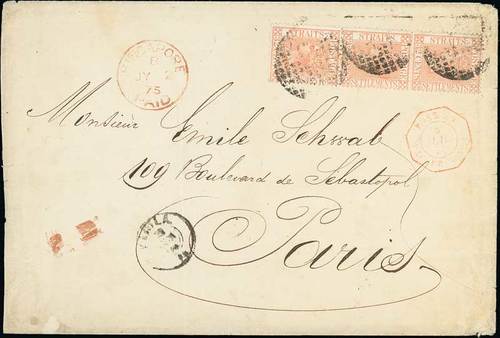 SINGAPORE
B
JY 2
75
PAID
STRAITS
SETTLEMENTS
STRAITS
SETTLEMENTS
STRAITS
SETTLEMENTS
Monsieur Emile Schwab
109 Boulevard de Sebastopol
Paris